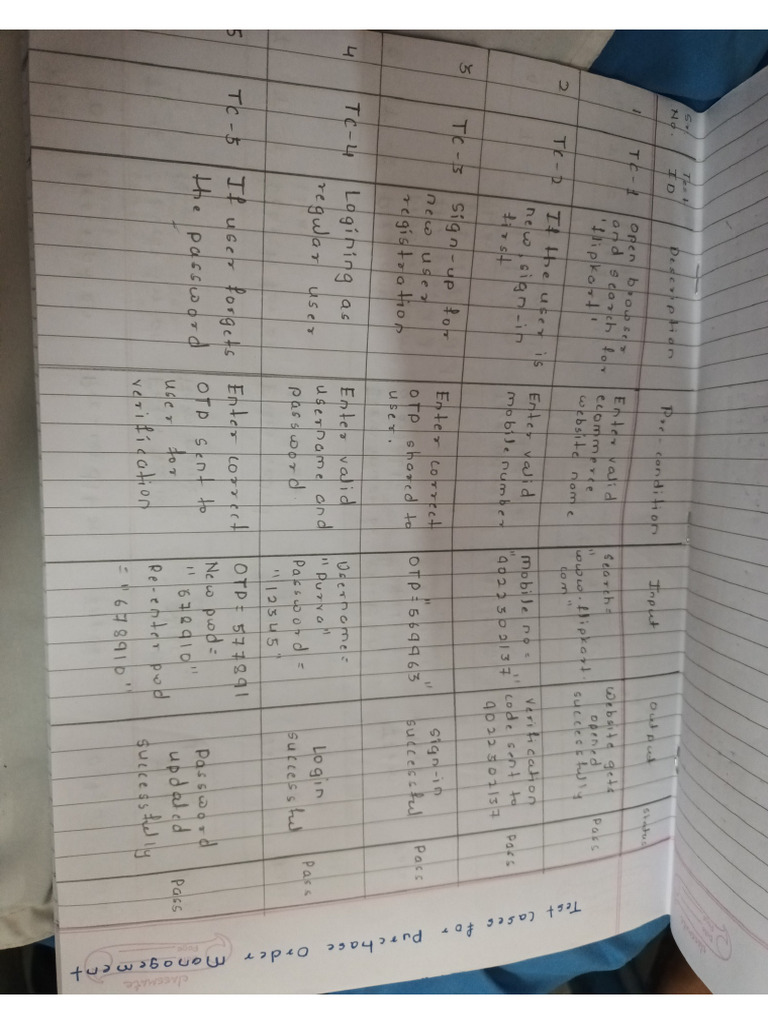 Test cases for Purchase Order Management
Sr. No.
Test ID
Description
Pre-condition
Input
Output
Status
1
TC-1
open browser
and search for
'flipkart'
Enter valid
ecommerce
website name
search=
"www.flipkart.
com"
website gets
opened
successfully
Pass
2
TC-2
If the user is
new, sign-in
first
Enter valid
mobile number
mobile no=
"9022502137"
verification
code sent to
9022502137
Pass
3
TC-3
Sign-up for
new user
registration
Enter correct
OTP shared to
user.
OTP= "569963"
sign-in
successful
Pass
4
TC-4
Logining as
regular user
Enter valid
username and
password
Username=
"Purva"
Password=
"12345"
Login
successful
Pass
5
TC-5
If user forgets
the password
Enter correct
OTP sent to
user for
verification
OTP= 577891
New pwd=
"678910"
Re-enter pwd
="678910"
Password
updated
successfully
Pass